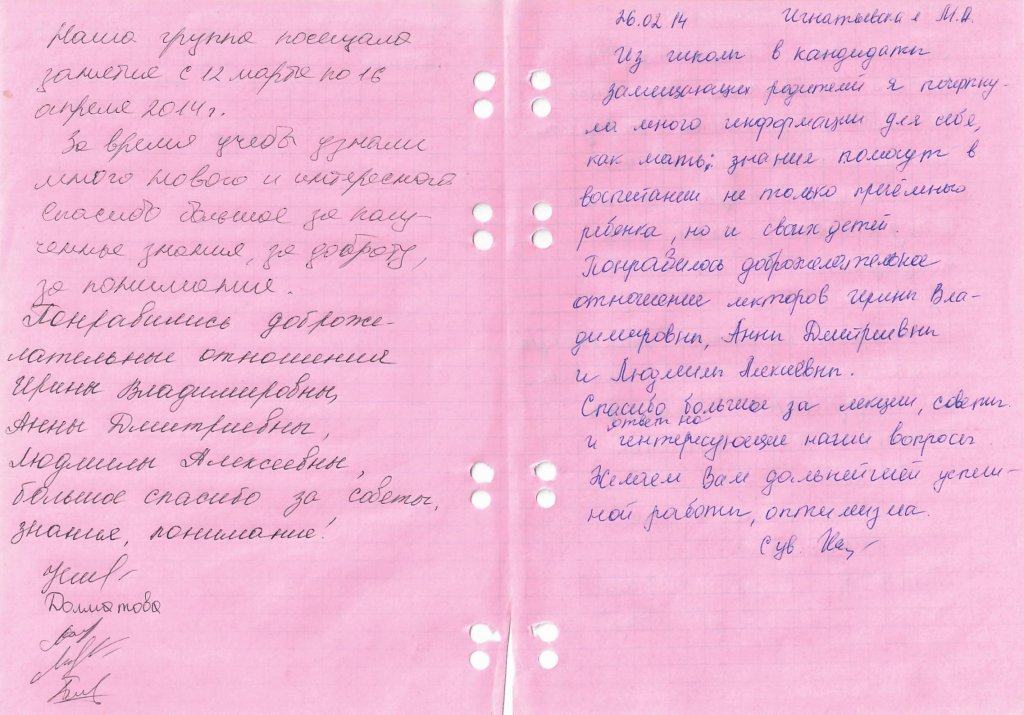 Наша группа посещала
занятия с 12 марта по 16
апреля 2014 г.
За время учебы узнали
много нового и интересного
Спасибо большое за полу-
ченные знания, за доброту,
за понимание.
Понравились доброже-
лательные отношения
Ирины Владимировны,
Анны Дмитриевны,
Людмилы Алексеевны,
большое спасибо за советы,
знания, понимание!
Долматова
26.02.14 Игнатьевская М.А.
Из школы в кандидаты
замещающих родителей я почерпну-
ла много информации для себя,
как мать; знания помогут в
воспитании не только приёмного
ребенка, но и своих детей.
Понравилось доброжелательное
отношение лекторов Ирины Вла-
димировны, Анны Дмитриевны
и Людмилы Алексеевны.
Спасибо большое за лекции, советы
и ответы на интересующие наши вопросы.
Желаем Вам дальнейшей успеш-
ной работы, оптимизма.
С ув.